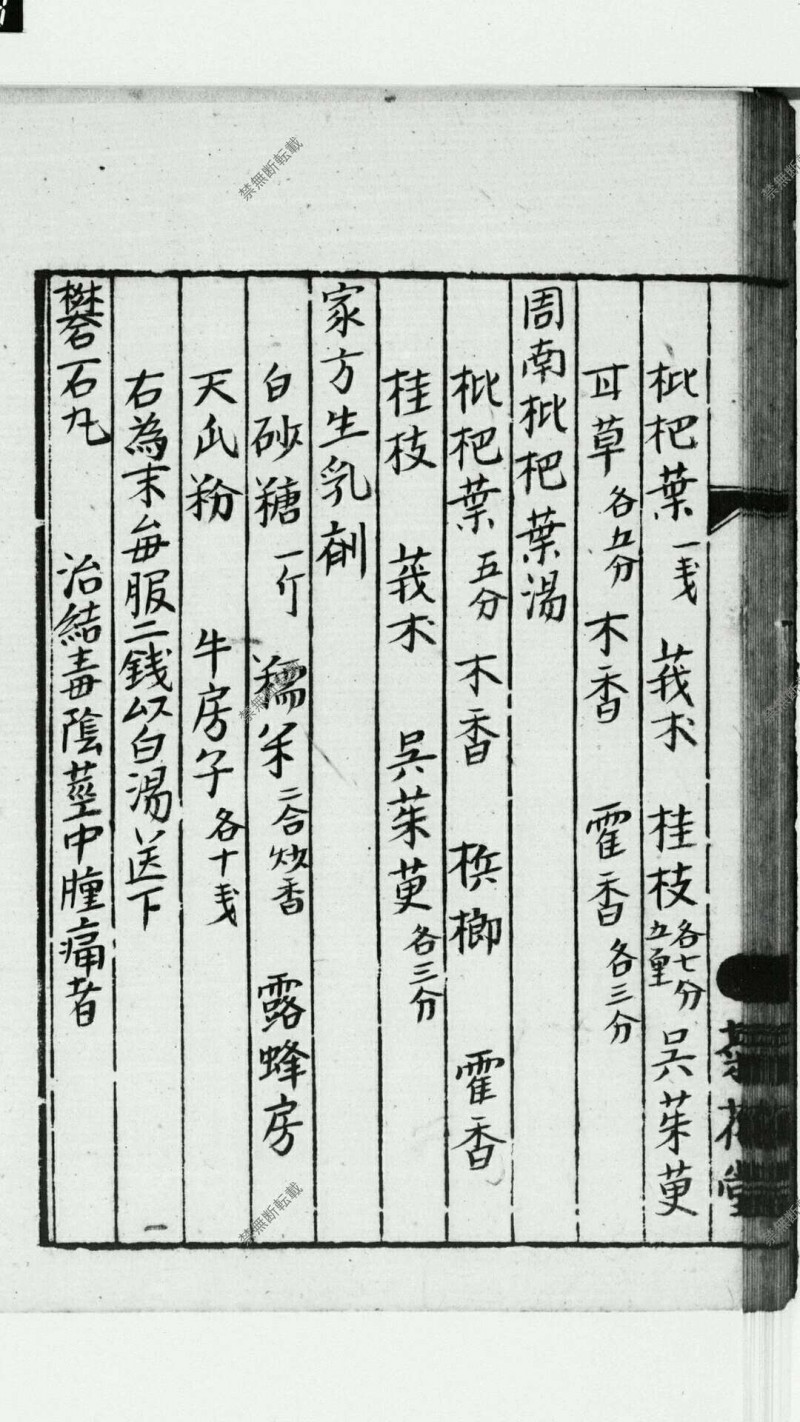 枇杷葉一戔 莪朮 桂枝各七分五厘 呉茱萸
甘草各五分 木香 霍香各三分
周南枇杷葉湯
枇杷葉五分 木香 梹榔 霍香
桂枝 莪朮 呉茱萸各三分
家方生乳剤
白砂糖一斤 糯米二合炒香 露蜂房
天瓜粉 牛房子各十戔
右為末毎服二銭以白湯送下
礬石丸 治結毒陰莖中腫痛者
禁無断転載
禁無断転載
禁無断転載